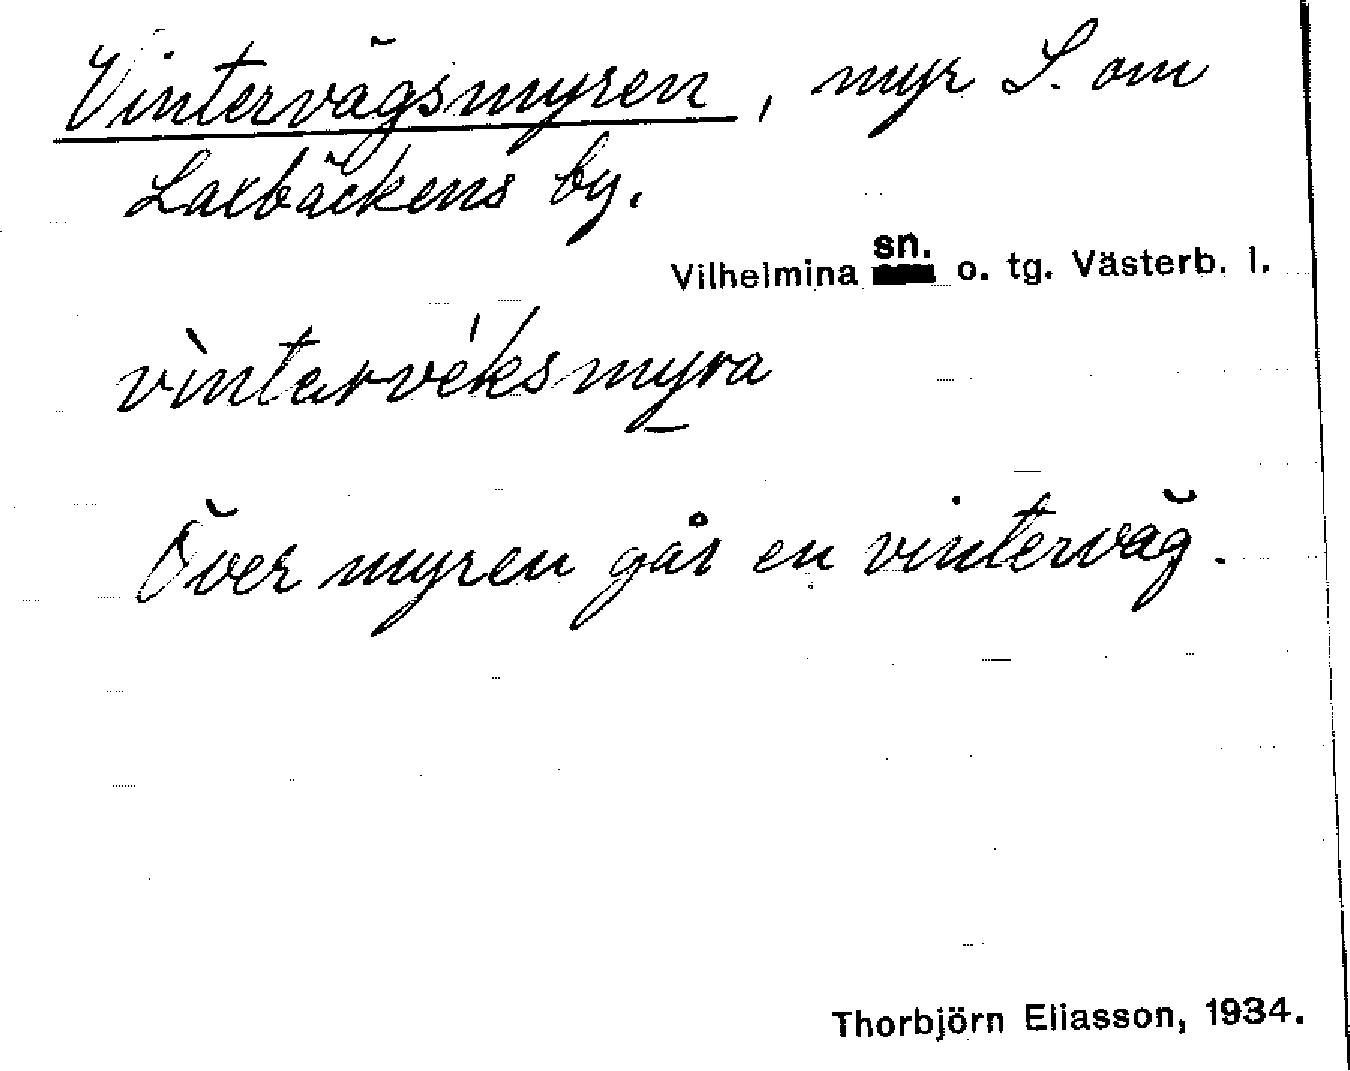 Vintervägsmyren, myr S. om
Laxbäckens by.
Vilhelmina sn. o. tg. Västerb. l.
vìntarvéksmyra
Över myren går en vinterväg.
Thorbjörn Eliasson, 1934.